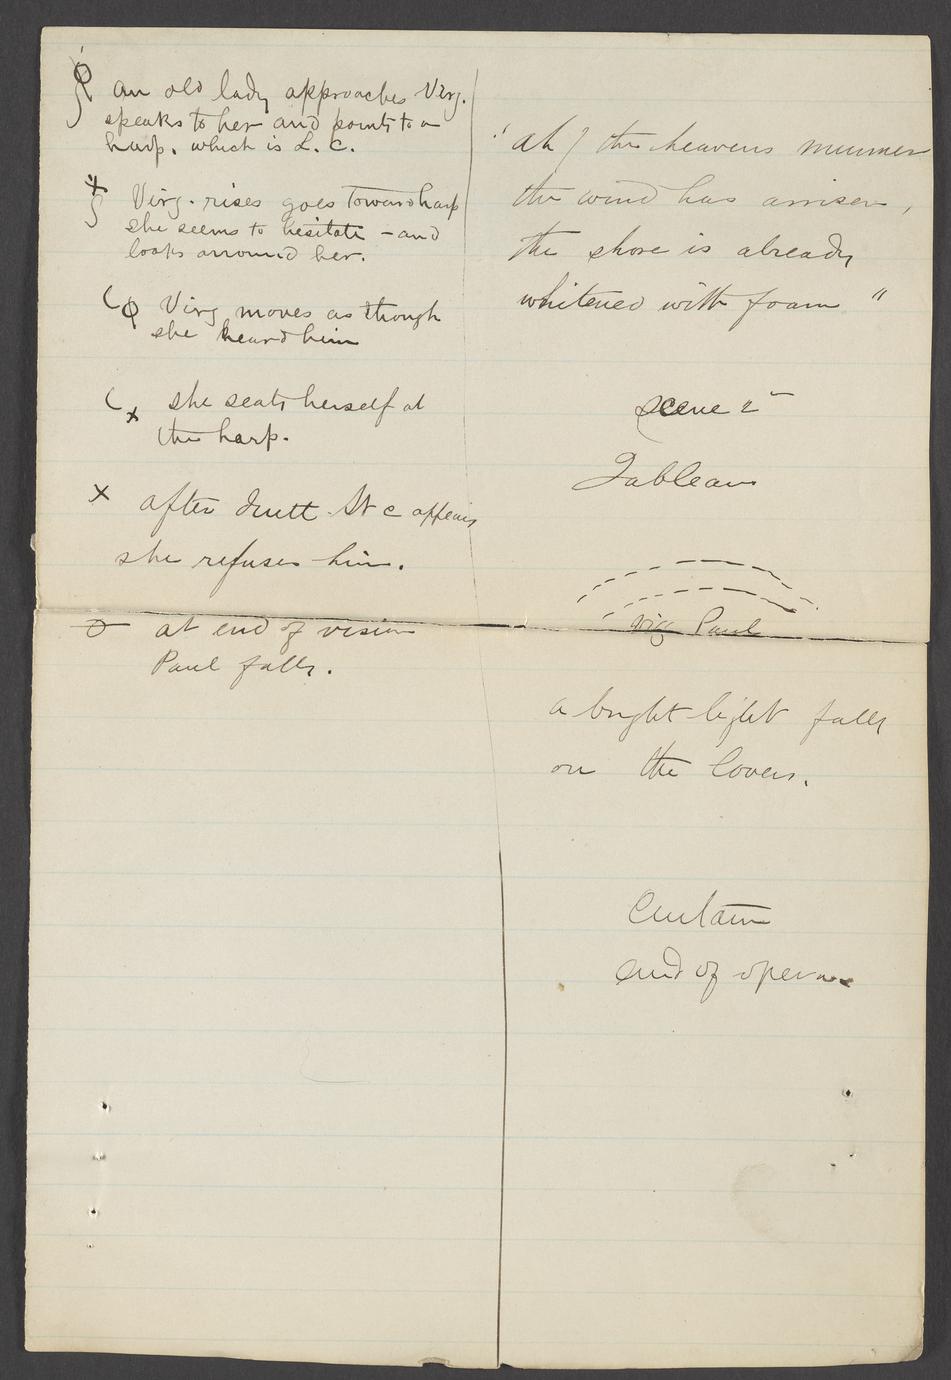 an old lady approaches Virg.
speaks to her and points to a
harp. which is L. C.
Virg. rises goes toward harp
she seems to hesitate - and
looks arround her.
Virg moves as though
she heard him
she seats herself at
the harp.
after duett St C appears
she refuses him.
at end of vision
Paul falls.
"ah! the heavens murmer
the wind has arrisen,
the shore is already
whitened with foam"
scene 2
Tableau
Virg Paul
a bright light falls
on the lovers.
Curtain
end of opera